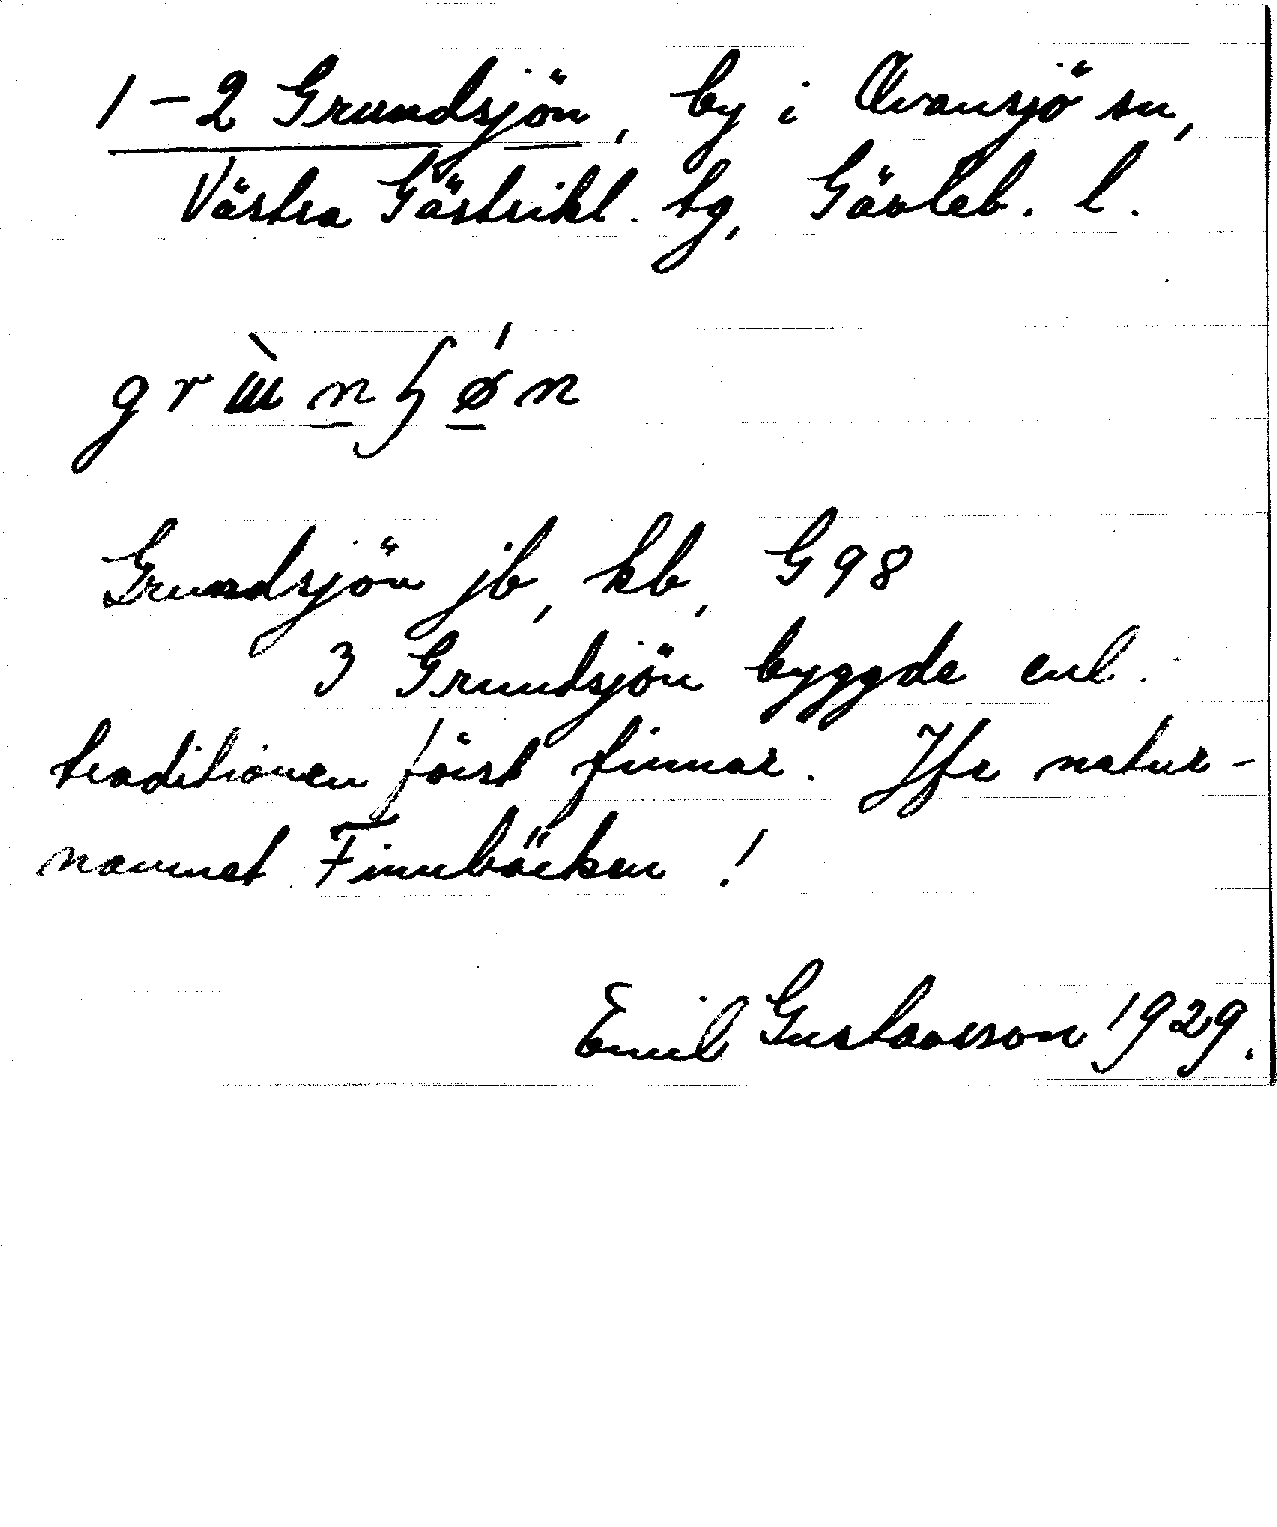 1-2 Grundsjön, by i Ovansjö sn,
Västra Gästrikl. tg, Gävleb. l.
Grundsjön jb, kb, G 98
I Grundsjön byggde enl.
traditionen först finnar. Jfr natur-
namnet Finnbäcken!
Emil Gustavsson 1929.